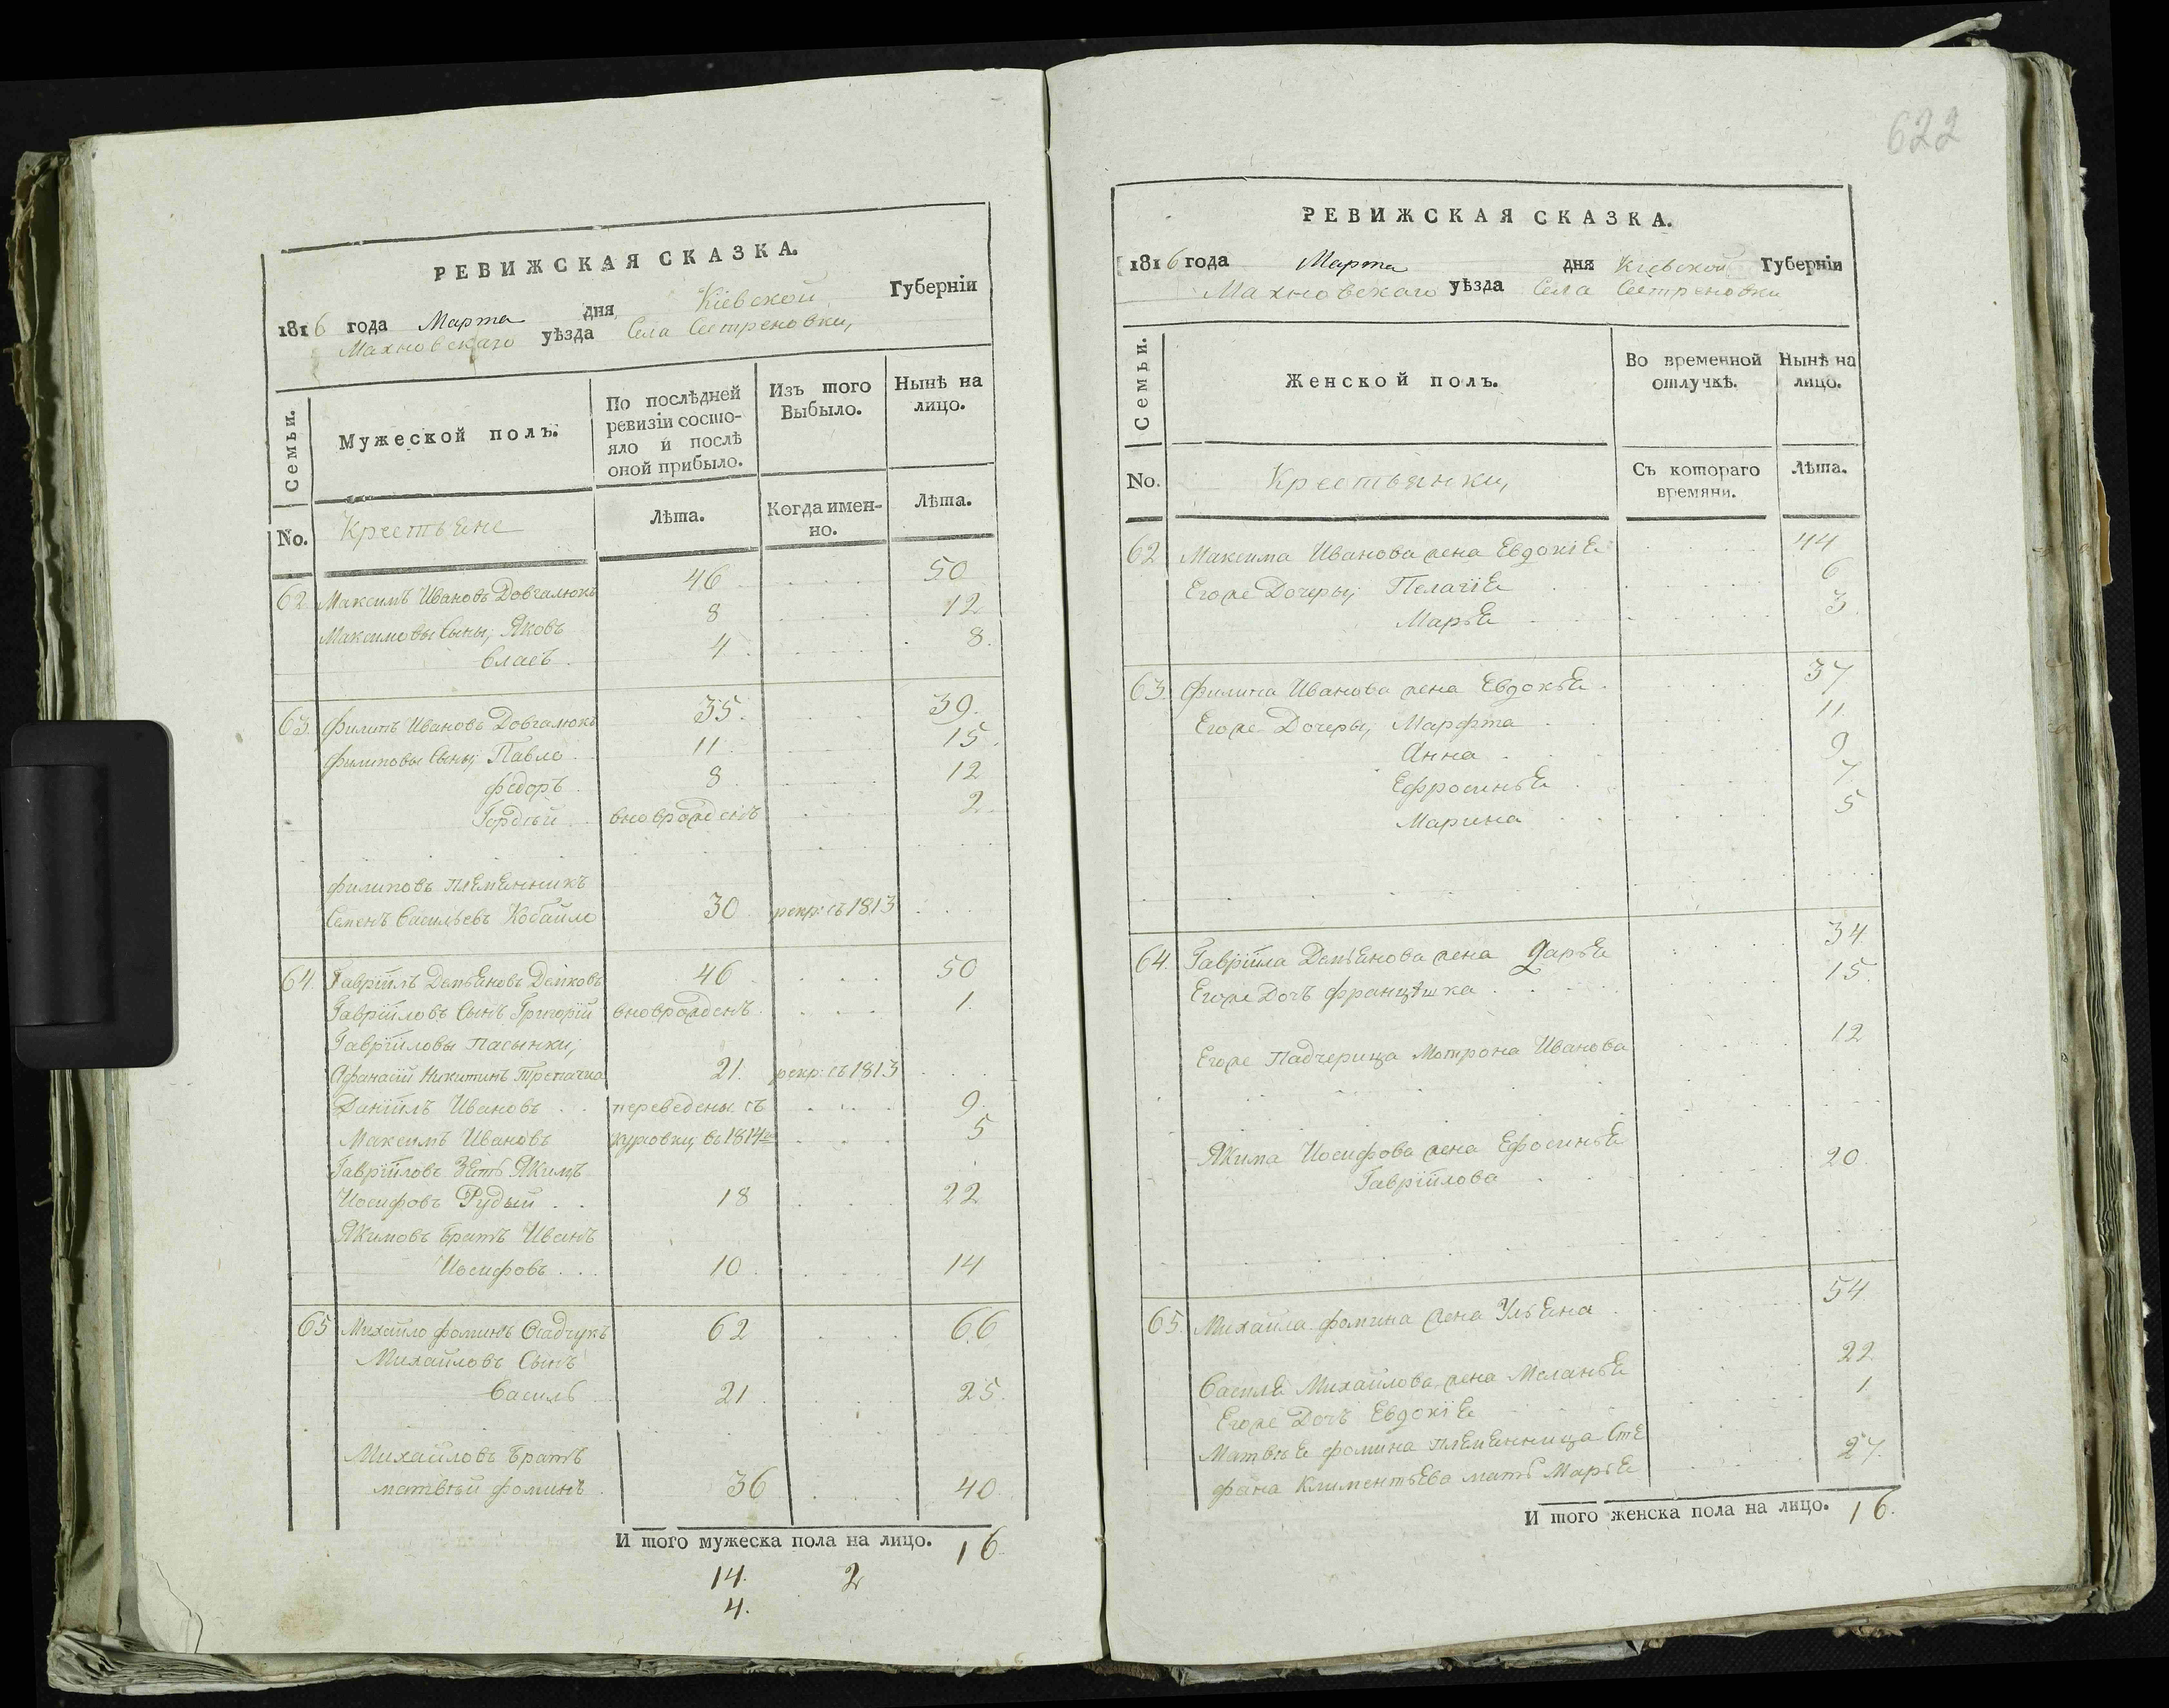 622
РЕВИЖСКАЯ СКАЗКА.
1816 года Марта дня Кіевской Губерніи
Махновскаго уѣзда Села Сестреновки,
Семьи.
Мужеской полъ.
По послѣдней ревизіи состо-
яло и послѣ
оной прибыло.
Изъ того Выбыло.
Нынѣ на лицо.
No.
Крестьяне
Лѣта.
Когда имен-
но.
Лѣта.
62 Максимъ Ивановъ Довгалюкъ 46 50
Максимовы Сыны, Яковъ 8 12
Власъ 4 8.
63. Филипъ Ивановъ Довгалюкъ 35. 39.
Филиповы Сыны, Павло 11 15.
Федоръ 8 12
Гордѣй вноврожденъ 2
Филиповъ племянникъ
Семенъ Васильевъ Кобайло 30 рекр: съ 1813
64. Гавріилъ Демьяновъ 46 50
Гавріиловъ Сынъ Григорій вноврожденъ 1.
Гавріиловы пасынки,
Афанасій Никитинъ 21. рекр: съ 1813
Даніилъ Ивановъ переведены съ 9.
Максимъ Ивановъ въ 1814 5
Гавріиловъ Зять Якимъ
Иосифовъ Рудый 18 22
Якимовъ Братъ Иванъ
Иосифовъ 10. 14
65 Михайло Фоминъ Осадчукъ 62 66
Михайловъ Сынъ
Василь 21 25.
Михайловъ Братъ
матвѣй Фоминъ 36 40
И того мужеска пола на лицо. 16.
14. 2
4.
РЕВИЖСКАЯ СКАЗКА.
1816 года Марта дня Кіевской Губерніи
Махновскаго уѣзда Села Сестреновки
Семьи.
Женской полъ.
Во временной отлучкѣ.
Нынѣ на лицо.
No.
Крестьянки,
Съ котораго времяни.
Лѣта.
62 Максима Иванова жена Евдокія 44
Егоже Дочеры, Пелагія 6
Марья 3.
63. Филипа Иванова жена Евдокья 37
Егоже Дочеры, Марфта 11.
Анна 9
Ефросинья 7
Марина 5
64. Гавріила Демьянова жена Дарья 34.
Егоже Дочъ Францѣшка 15.
Егоже Падчерица Мотрона Иванова 12
Якима Иосифова жена Ефосинья
Гавріилова 20.
65. Михайла Фомина жена Ульяна 54
Василя Михайлова жена Меланья 22.
Егоже Дочъ Евдокія 1
Матвѣя Фомина племянница Сте
фана Климентьева мать Марья 27.
И того женска пола на лицо. 16.